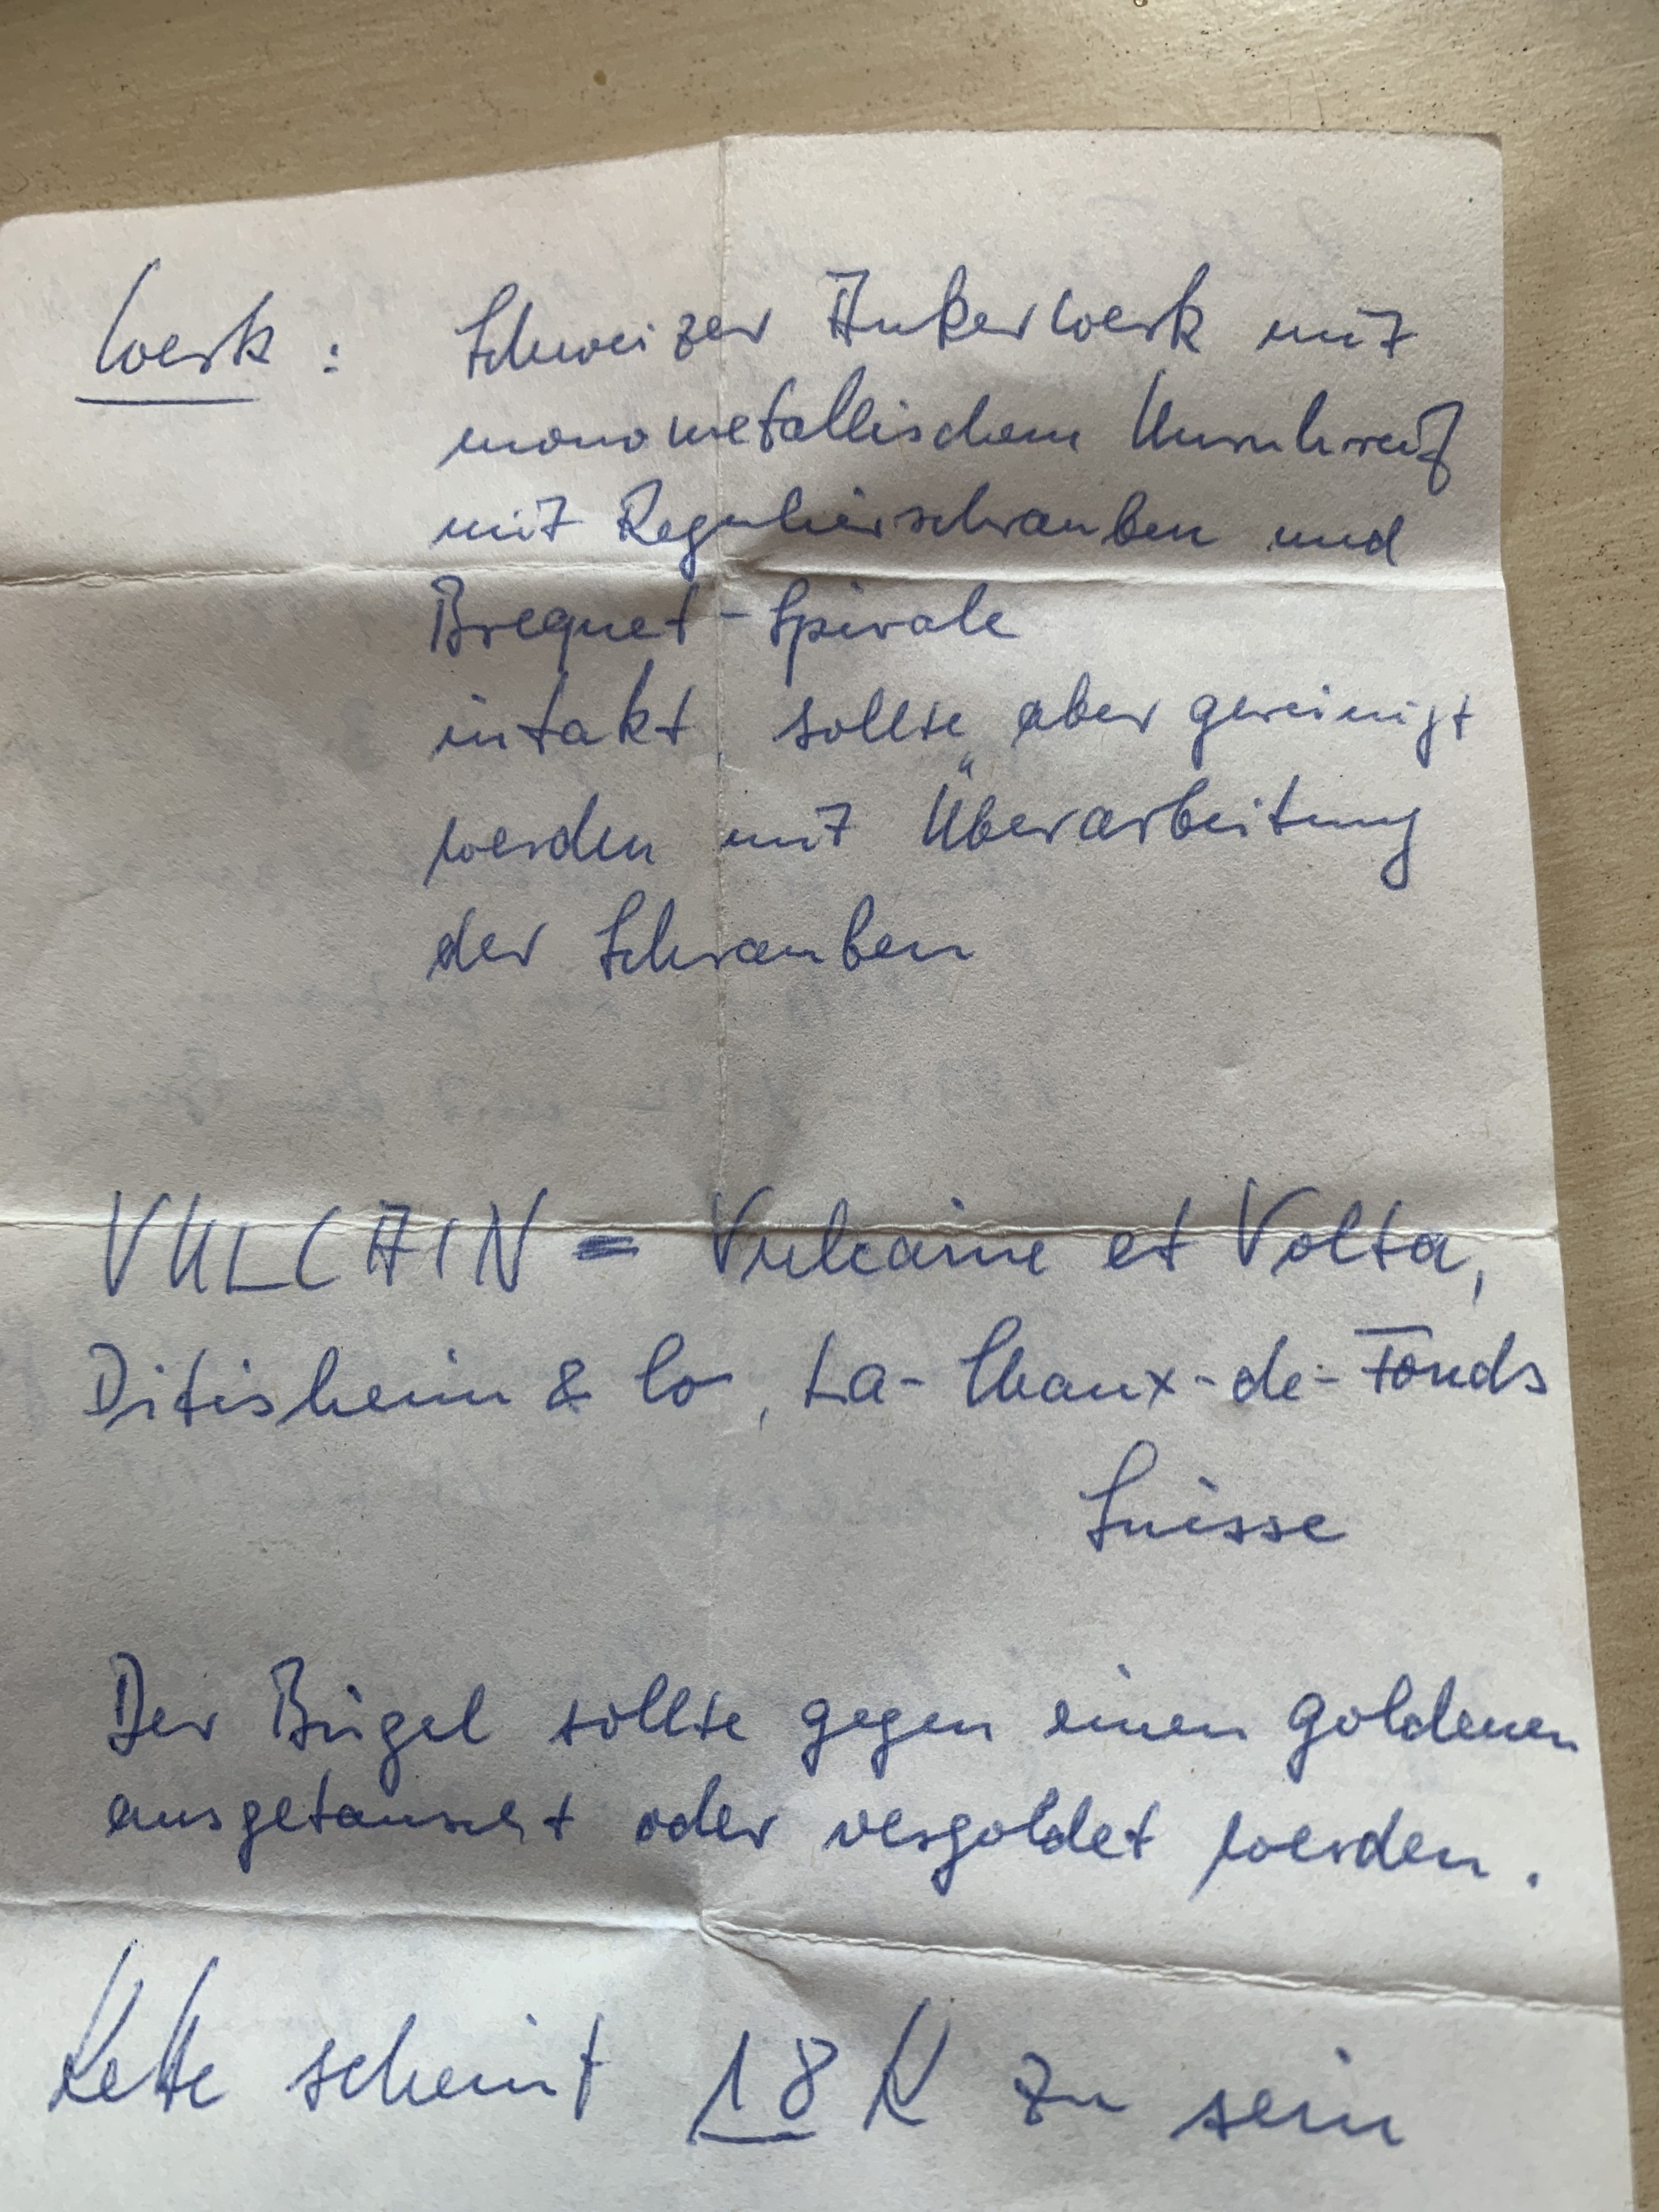 Werk : Schweizer Ankerwerk mit
monometallischem Unruhreif
mit Regulierschrauben und
Breguet-Spirale
intakt, sollte aber gereinigt
werden mit Überarbeitung
der Schrauben
VULCAIN = Vulcaine et Volta,
Ditisheim & Co, La-Chaux-de-Fonds
Suisse
Der Bügel sollte gegen einen goldenen
ausgetauscht oder vergoldet werden.
Kette scheint 18 K zu sein